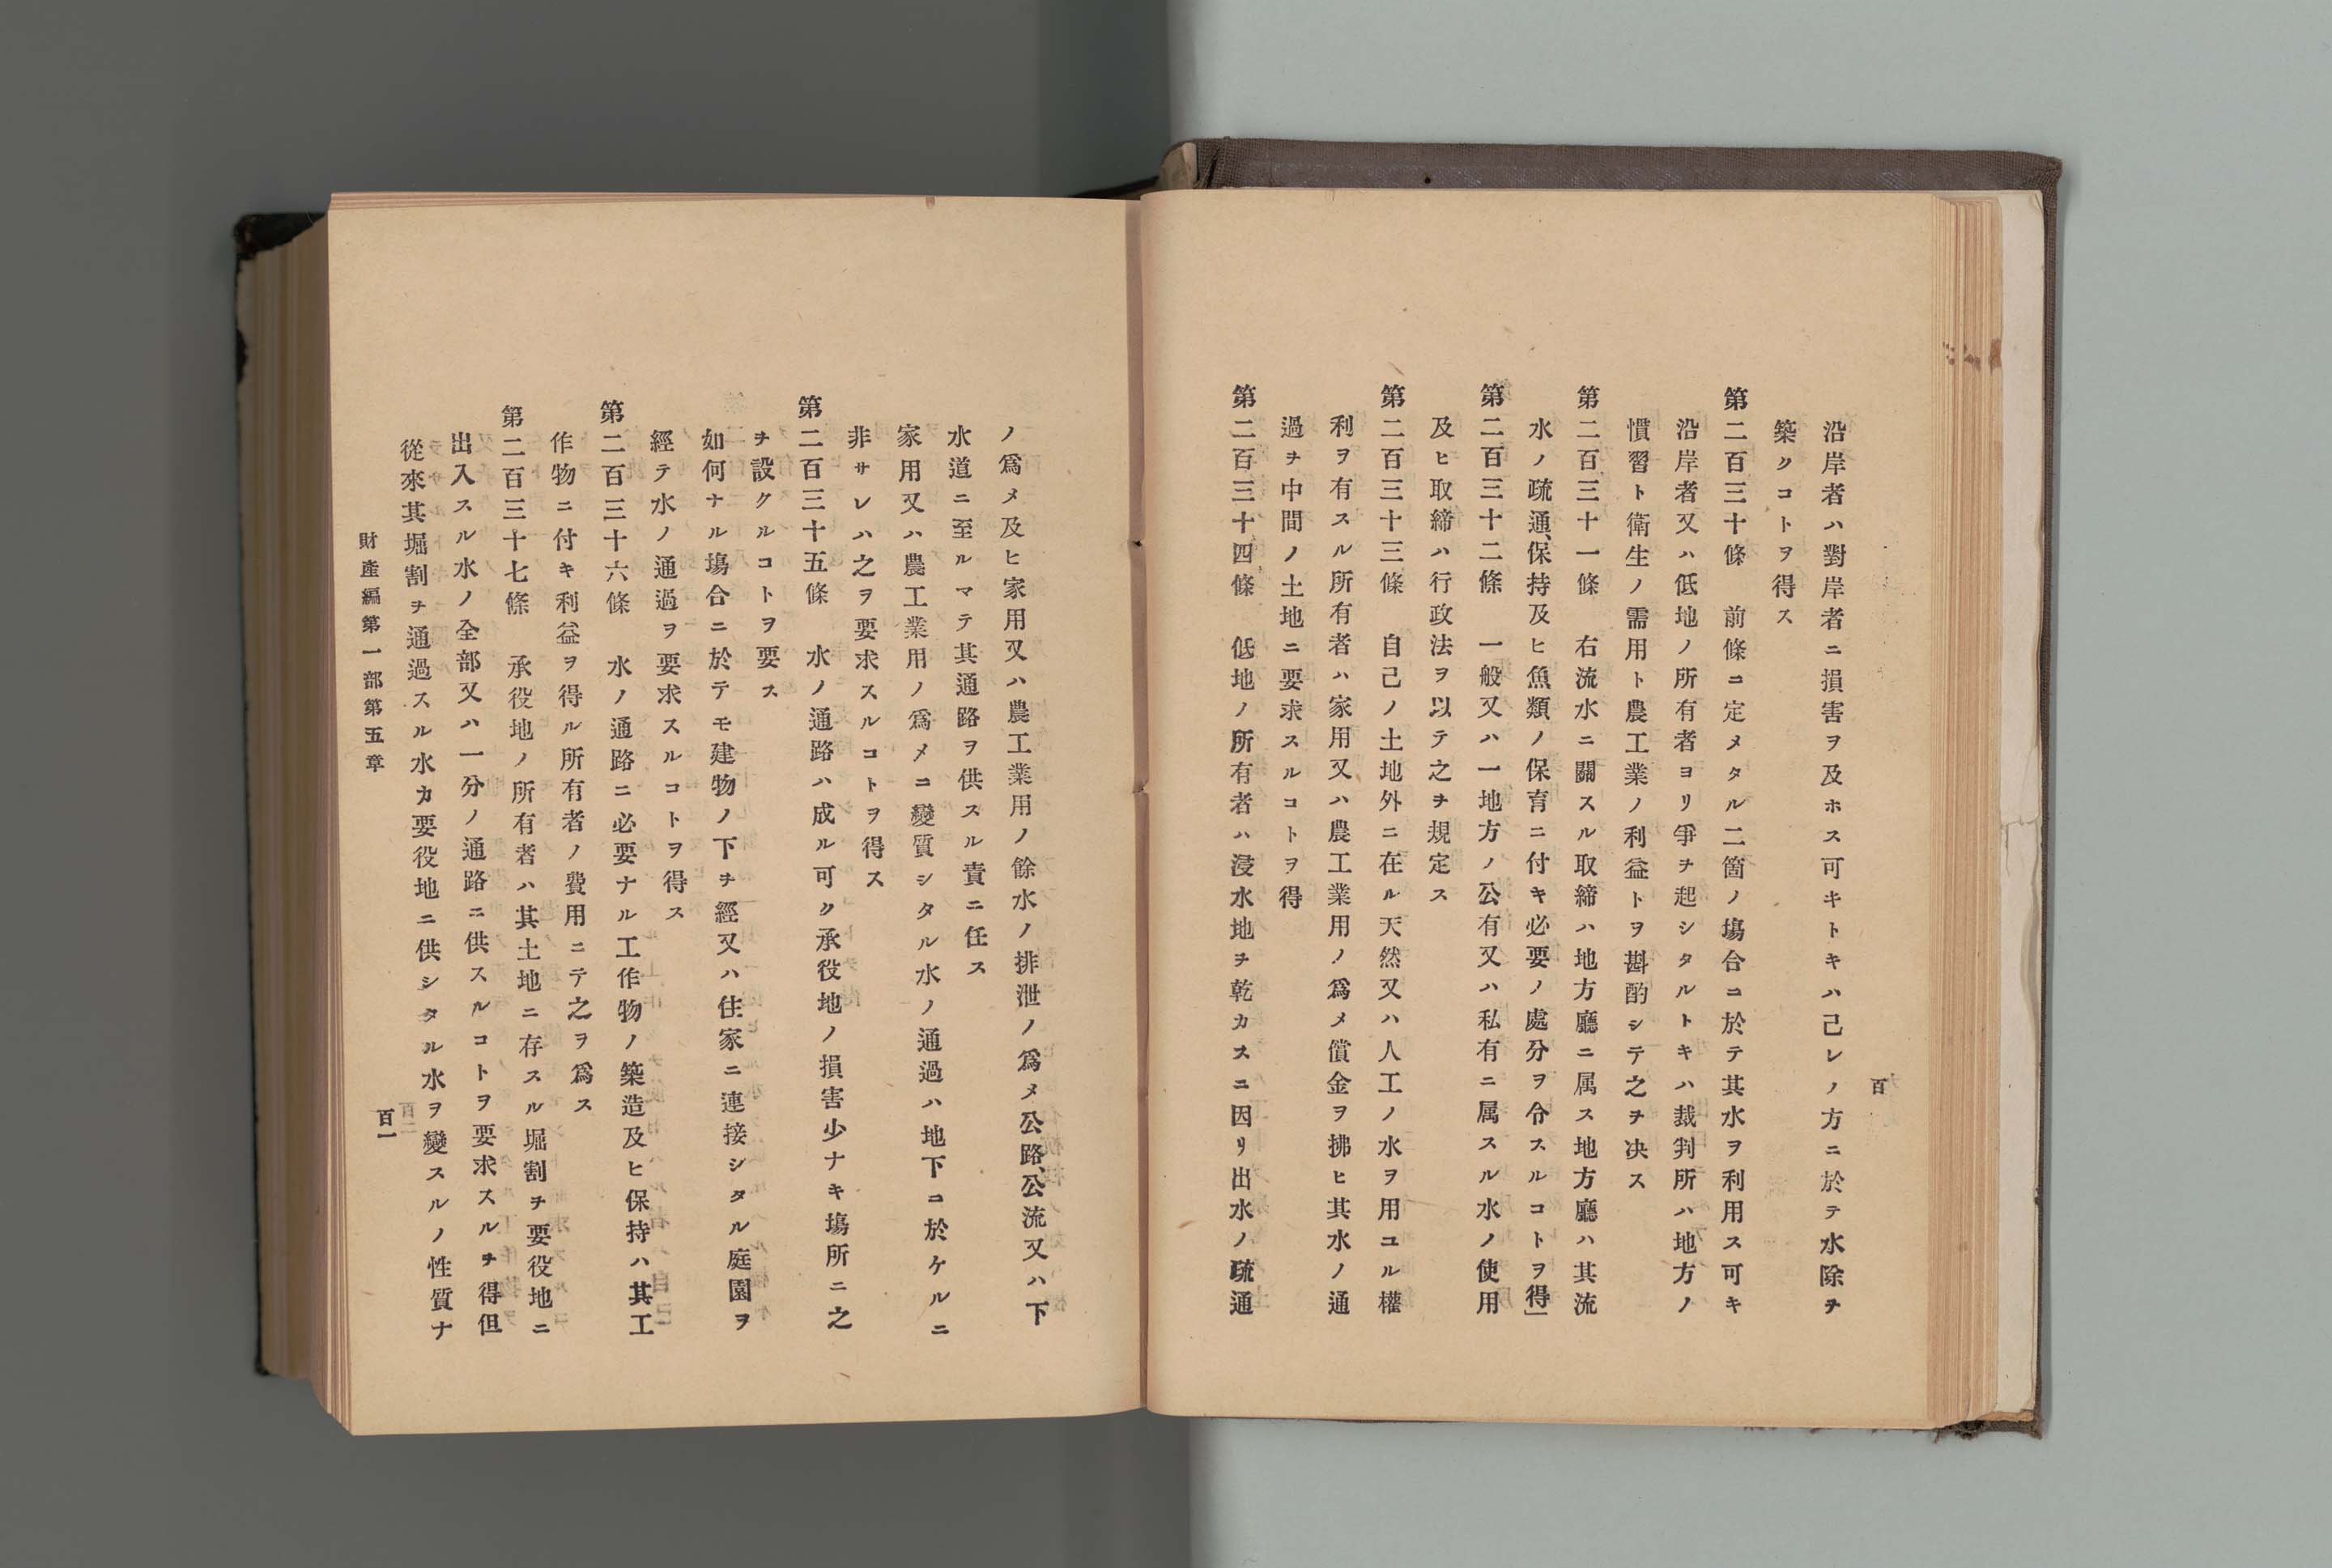 百
沿岸者ハ對岸者ニ損害ヲ及ホス可キトキハ己レノ方ニ於テ水除ヲ
築クコトヲ得ス
第二百三十條　前條ニ定メタル二箇ノ塲合ニ於テ其水ヲ利用ス可キ
沿岸者又ハ低地ノ所有者ヨリ爭ヲ起シタルトキハ裁判所ハ地方ノ
慣習ト衛生ノ需用ト農工業ノ利益トヲ斟酌シテ之ヲ决ス
第二百三十一條　右流水ニ關スル取締ハ地方廳ニ属ス地方廳ハ其流
水ノ疏通、保持及ヒ魚類ノ保育ニ付キ必要ノ處分ヲ令スルコトヲ得」
第二百三十二條　一般又ハ一地方ノ公有又ハ私有ニ属スル水ノ使用
及ヒ取締ハ行政法ヲ以テ之ヲ規定ス
第二百三十三條　自己ノ土地外ニ在ル天然又ハ人工ノ水ヲ用ユル權
利ヲ有スル所有者ハ家用又ハ農工業用ノ爲メ償金ヲ拂ヒ其水ノ通
過ヲ中間ノ土地ニ要求スルコトヲ得
第二百三十四條　低地ノ所有者ハ浸水地ヲ乾カスニ因リ出水ノ疏通
ノ爲メ及ヒ家用又ハ農工業用ノ餘水ノ排泄ノ爲メ公路、公流又ハ下
水道ニ至ルマテ其通路ヲ供スル責ニ任ス
家用又ハ農工業用ノ爲メニ變質シタル水ノ通過ハ地下ニ於ケルニ
非サレハ之ヲ要求スルコトヲ得ス
第二百三十五條　水ノ通路ハ成ル可ク承役地ノ損害少ナキ塲所ニ之
ヲ設クルコトヲ要ス
如何ナル塲合ニ於テモ建物ノ下ヲ經又ハ住家ニ連接シタル庭園ヲ
經テ水ノ通過ヲ要求スルコトヲ得ス
第二百三十六條　水ノ通路ニ必要ナル工作物ノ築造及ヒ保持ハ其工
作物ニ付キ利益ヲ得ル所有者ノ費用ニテ之ヲ爲ス
第二百三十七條　承役地ノ所有者ハ其土地ニ存スル堀割ヲ要役地ニ
出入スル水ノ全部又ハ一分ノ通路ニ供スルコトヲ要求スルヲ得但
從來其堀割ヲ通過スル水カ要役地ニ供シタル水ヲ變スルノ性質ナ
財產編第一部第五章
百一